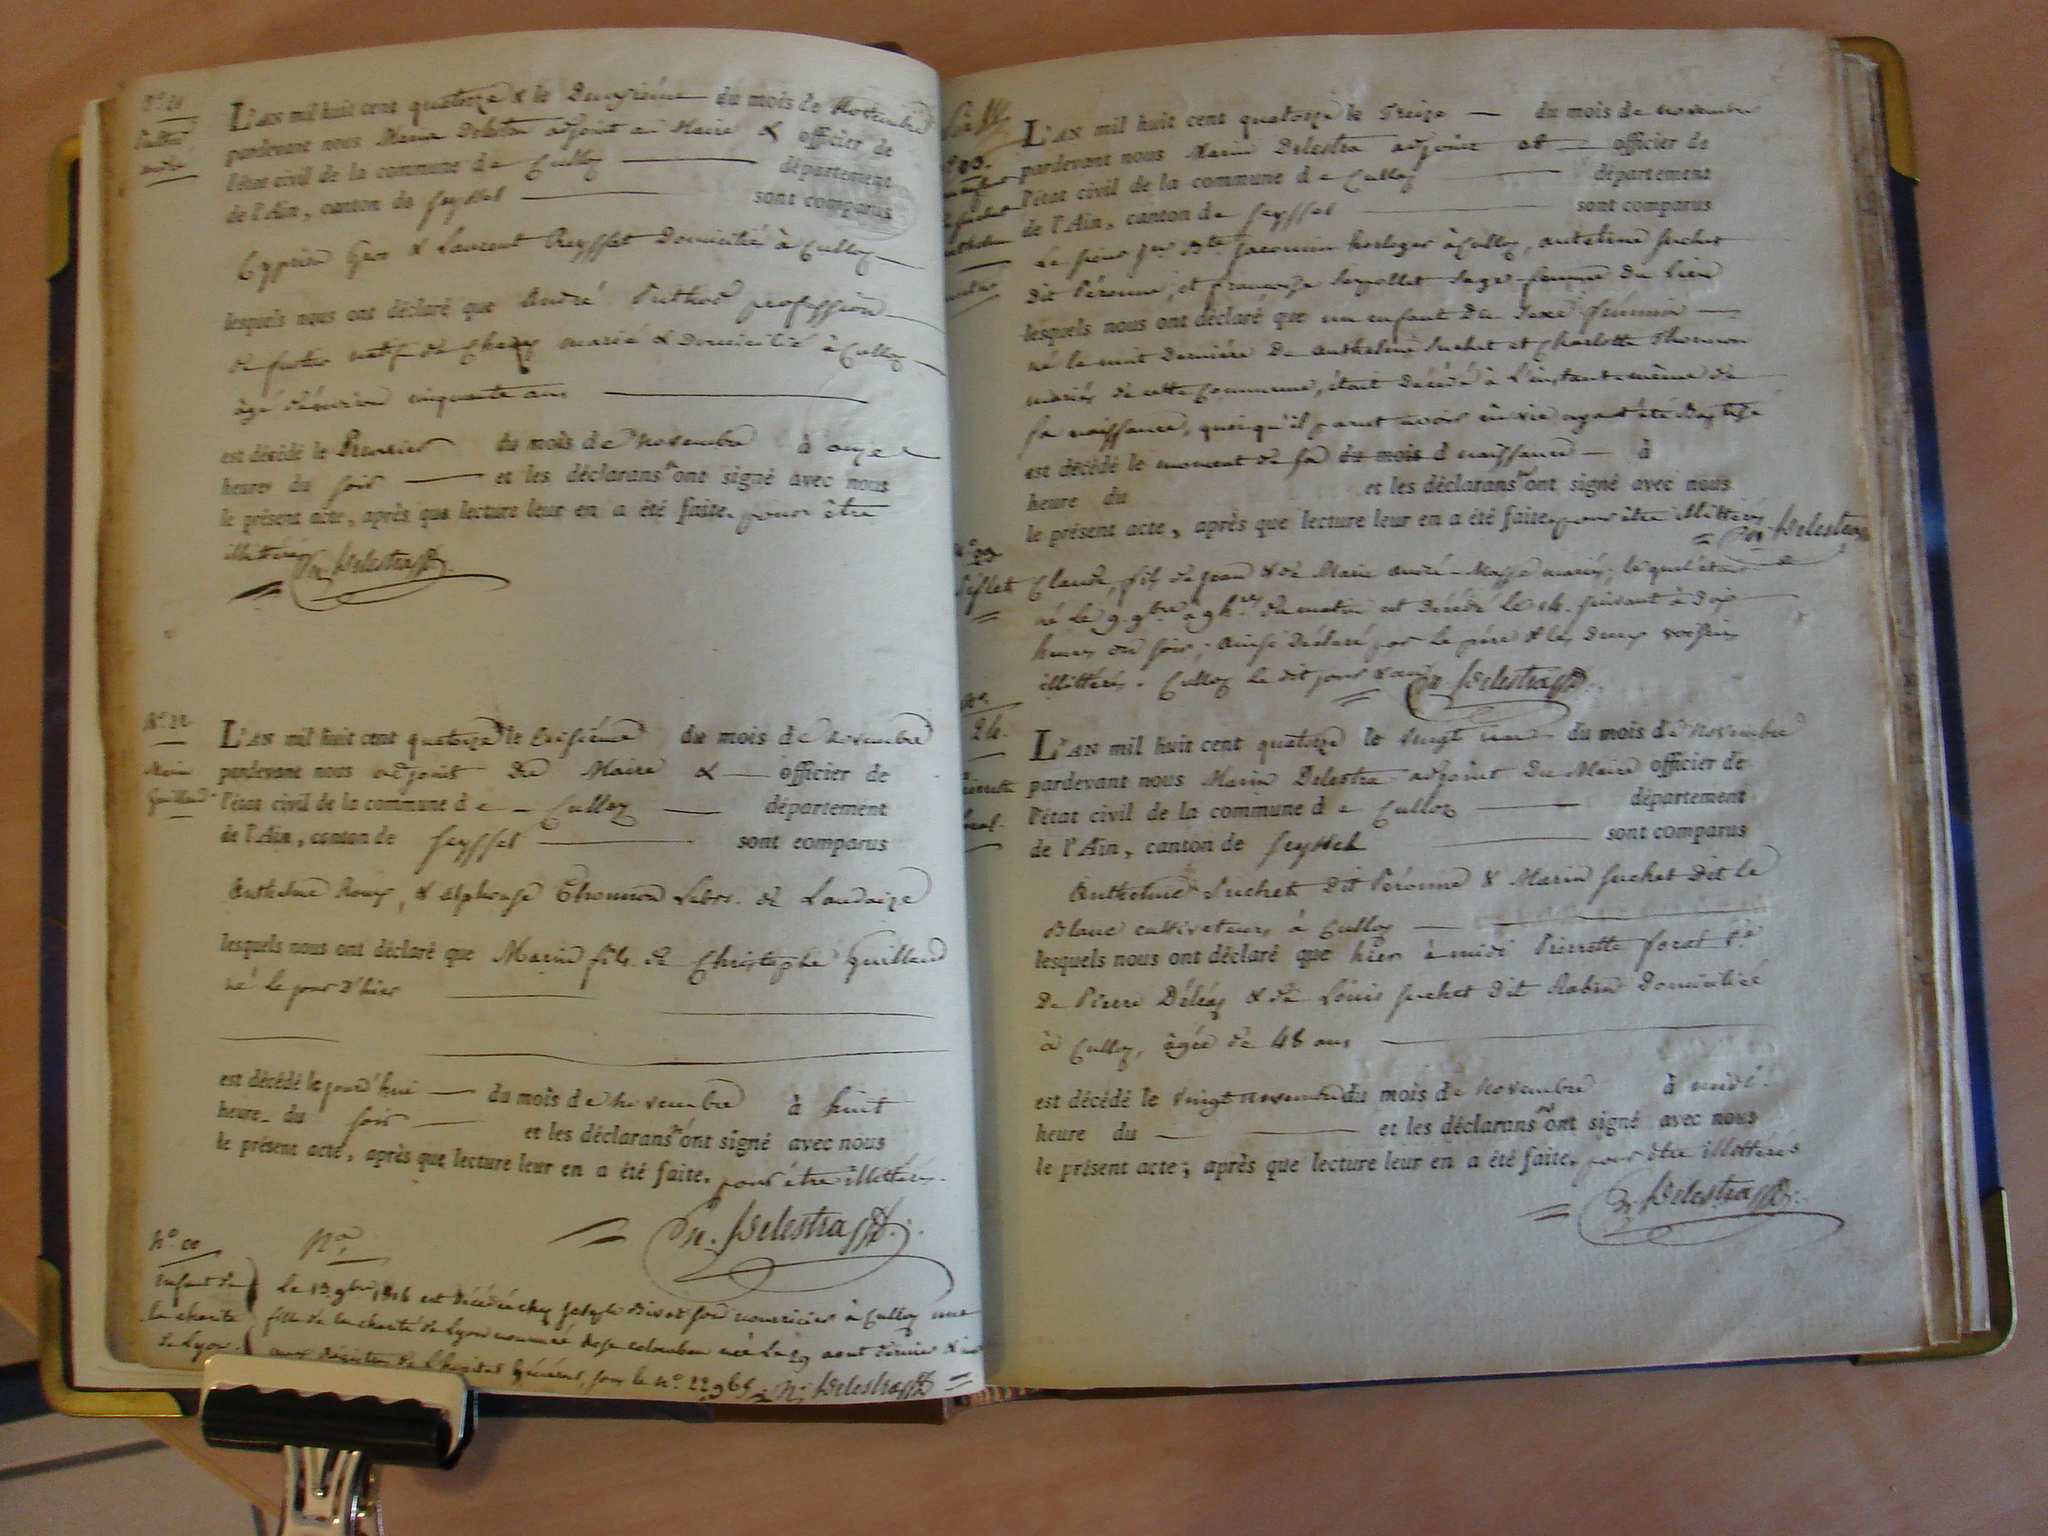 N° 21
L'AN mil huit cent quatorze & le Deuxiéme du mois de Novembre
pardevant nous Marin Delestra adjoint au Maire & officier de
l'état civil de la commune de Culloz département
de l'Ain, canton de Seyssel sont comparus
Cyprien Gros & Laurent Reyssset Domicilié à Culloz
lesquels nous ont déclaré que André Puthod profession
de natif de marié & Domicilié à Culloz
âgé d'environ cinquante ans
est décédé le Premier du mois de Novembre à onze
heures du soir et les déclarans n'ont signé avec nous
le présent acte, après que lecture leur en a été faite. pour être
illittérés Delestra
N° 22
Marin
Guilland
L'AN mil huit cent quatorze le du mois de novembre
pardevant nous adjoint du Maire & officier de
l'état civil de la commune de Culloz département
de l'Ain, canton de Seyssel sont comparus
Anthelme Roux, & alphonse Thonnon de Landaize
lesquels nous ont déclaré que Marin fils de Christophe Guilland
né le jour d'hier
est décédé le jourd'hui du mois de novembre à huit
heure du soir et les déclarans n'ont signé avec nous
le présent acte, après que lecture leur en a été faite. pour être illittérés.
Delestra
N° 00
Enfant de
la charité
de Lyon
Na
Le 13 9bre est décédé chez son nourricier à Culloz une
fille de la charité de Lyon nommé Rose née le 29 aout dernier &
aux Régistres de l'hopital Général, sous le n° 22965 Delestra
L'AN mil huit cent quatorze le Treize du mois de novembre
pardevant nous Marin Delestra adjoint et officier de
l'état civil de la commune de Culloz département
de l'Ain, canton de Seyssel sont comparus
Le sieur Jn Bte Jacquin horloger à Culloz, anthelme Suchet
dit Péronne, et françoise Serpollet sage-femme du lieu
lesquels nous ont déclaré que un enfant du Sexe féminin
né la nuit dernière de anthelme Suchet et Charlotte Thonnon
mariés de cette Commune, était décédé à l'instant même de
sa naissance, quoiqu'il parut avoir en vie ayant été Baptisé
est décédé le moment de sa du mois d naissance à
heure du et les déclarans n'ont signé avec nous
le présent acte, après que lecture leur en a été faite. pour être illittérés
Delestra
N° 23
Claude, fils de Jean & de Marie André-Masse mariés, lequel était
né le 9. 9bre à 9 h.res du matin est décédé le 14. suivant à dix
heures du soir, ainsi déclaré par le père & les deux voisins
illittérés. Culloz le dit jour & an Delestra
N°
24.
L'AN mil huit cent quatorze le vingt un du mois de Novembre
pardevant nous Marin Delestra adjoint du Maire officier de
l'état civil de la commune de Culloz département
de l'Ain, canton de Seyssel sont comparus
Anthelme Suchet dit Péronne & Marin Suchet dit le
Blanc cultivateurs à Culloz
lesquels nous ont déclaré que hier à midi Pierrette forat
De Pierre Déléaz & de Louis Suchet dit Rabin Domiciliée
à Culloz, âgée de 48 ans
est décédé le vingt novembre du mois de Novembre à midi.
heure du et les déclarans n'ont signé avec nous
le présent acte, après que lecture leur en a été faite. pour être illittérés
Delestra